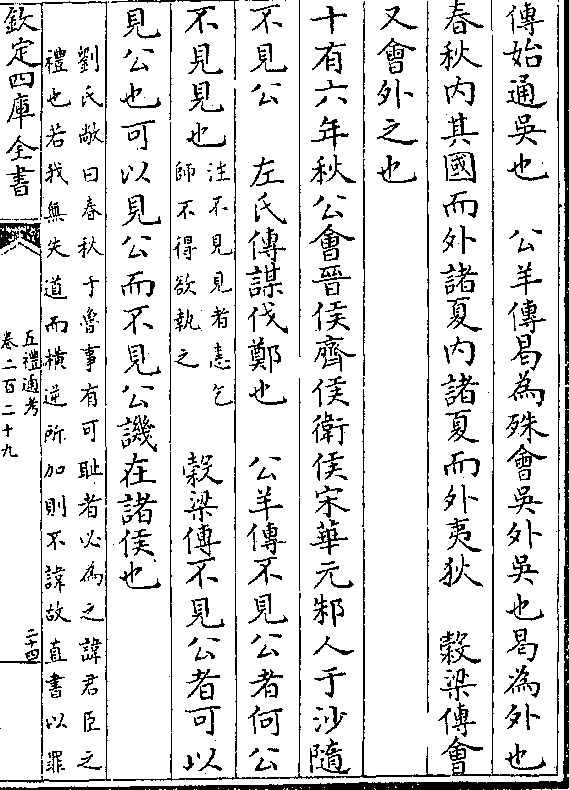 傳始通吳也　公羊傳曷為殊會吳外吳也曷為外也
春秋内其國而外諸夏内諸夏而外夷狄　穀梁傳會
又會外之也
十有六年秋公會晉侯齊侯衛侯宋華元邾人于沙隨
不見公　左氏傳謀伐鄭也　公羊傳不見公者何公
不見見也
注不見見者恚乞
師不得欲執之
穀梁傳不見公者可以
見公也可以見公而不見公譏在諸侯也
劉氏敞曰春秋于魯事有可耻者必為之諱君臣之
禮也若我無失道而橫逆所加則不諱故直書以罪
欽定四庫全書
五禮通考
卷二百二十九
二十四